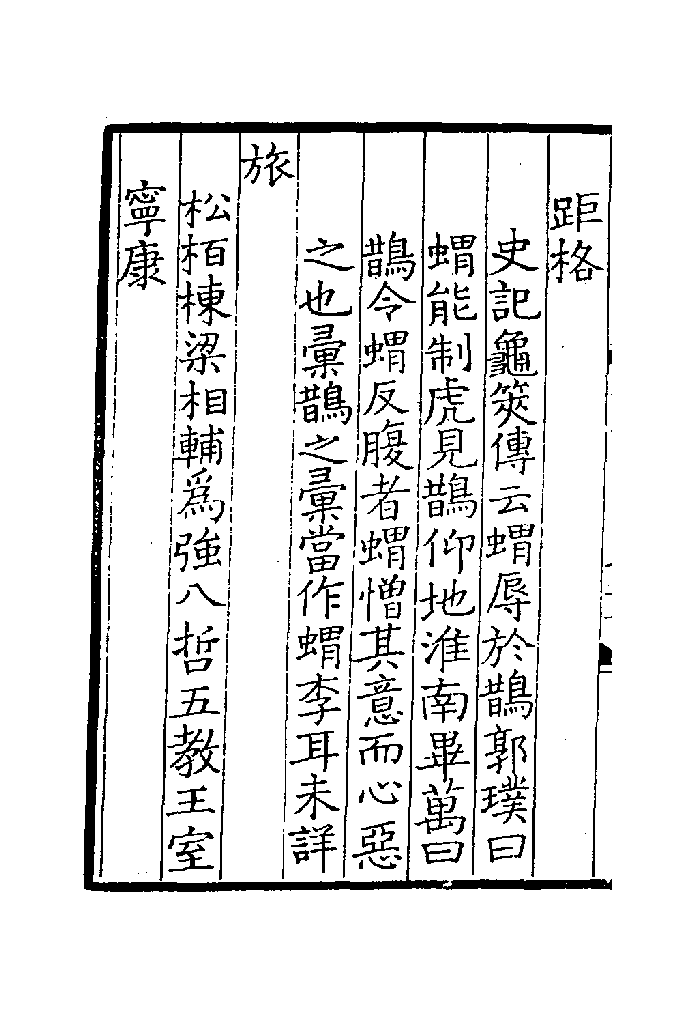 距格
史記龜筴傳云蝟辱於鵲郭璞曰
蝟能制虎見鵲仰地淮南畢萬曰
鵲令蝟反腹者蝟憎其意而心惡
之也彚鵲之彚當作蝟李耳未詳
旅
松栢棟梁相輔為強八哲五教王室
寧康